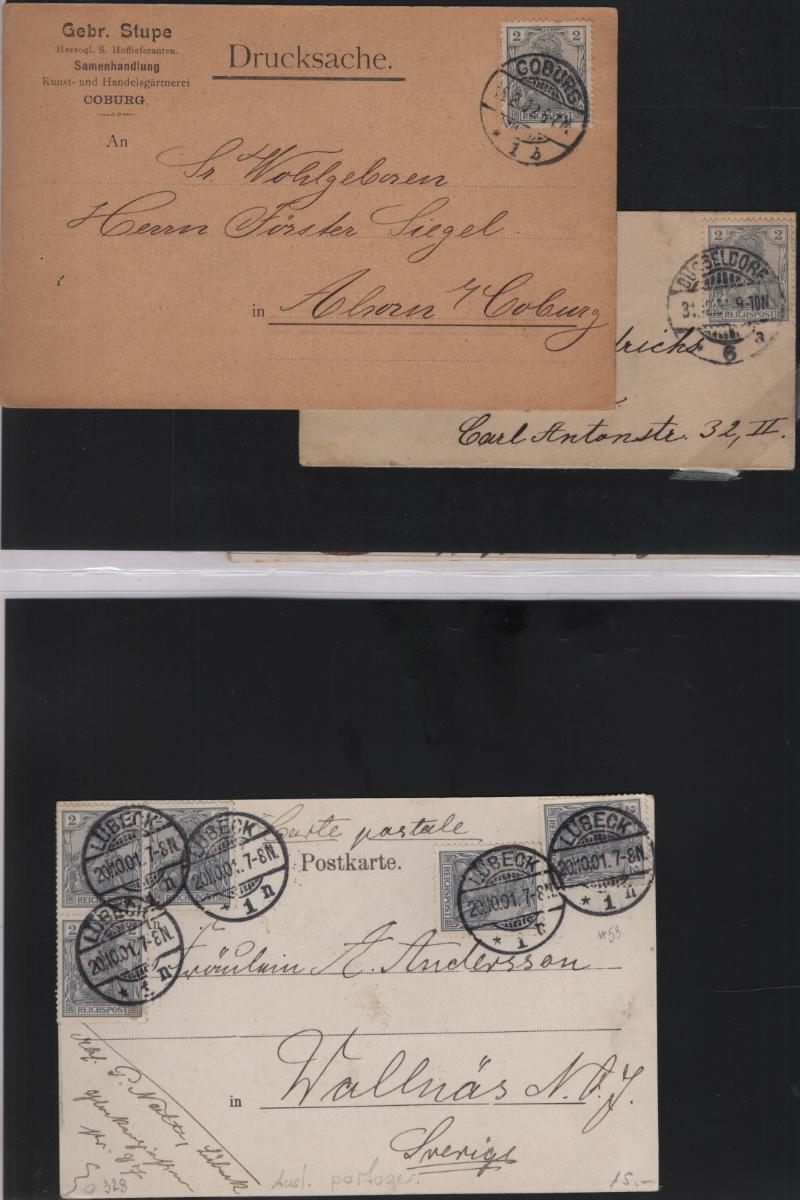 Gebr. Stupe
Herzogl. S. Hoflieferanten.
Samenhandlung
Kunst- und Handelsgärtnerei
COBURG.
Drucksache.
2 2
REICHSPOST
COBURG
* 1 b
An
Sr. Wohlgeboren
Herrn Förster Siegel
in Ahorn b/Coburg
2 2
REICHSPOST
DÜSSELDORF
9-10N.
* 6 a
Carl Antonstr. 32, II.
LÜBECK
20.10.01. 7-8N.
* 1 n
LÜBECK
20.10.01. 7-8N.
* 1 n
LÜBECK
20.10.01. 7-8N.
* 1 n
2
REICHSPOST
Carte postale
Postkarte.
LÜBECK
20.10.01. 7-8N.
LÜBECK
20.10.01. 7-8N.
* 1 n
#53
Fräulein A. Andersson
in Wallnäs N. O. J.
Sverige
Abs. P. Nolte, Lübeck
328
Ausl. portoger.
15.-